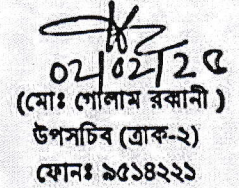 02/02/2৫
(মোঃ গোলাম রব্বানী )
উপসচিব (ত্রাক-২)
ফোনঃ ৯৫১৪২২১